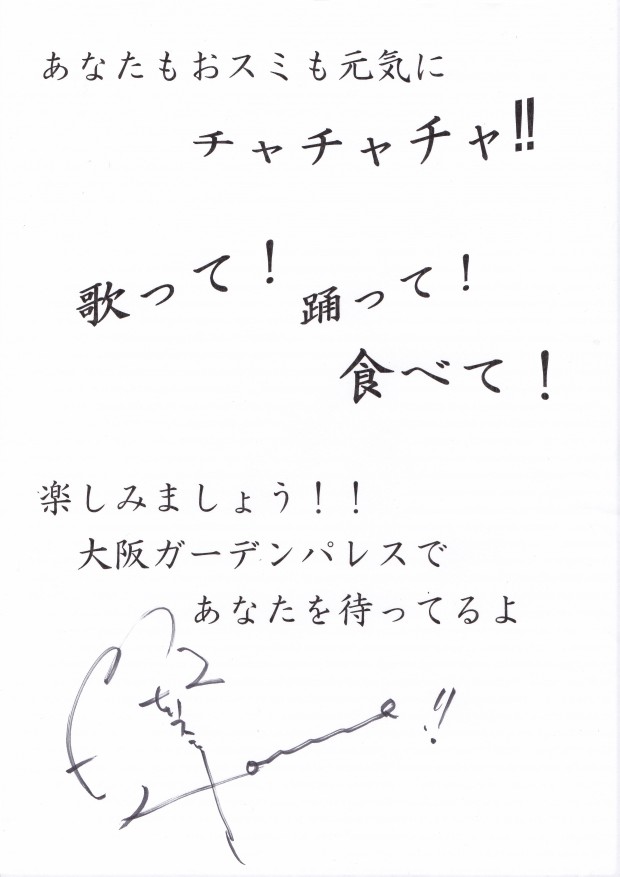 あなたもおスミも元気に
チャチャチャ!!
歌って！踊って！
食べて！
楽しみましょう！！
大阪ガーデンパレスで
あなたを待ってるよ
!!